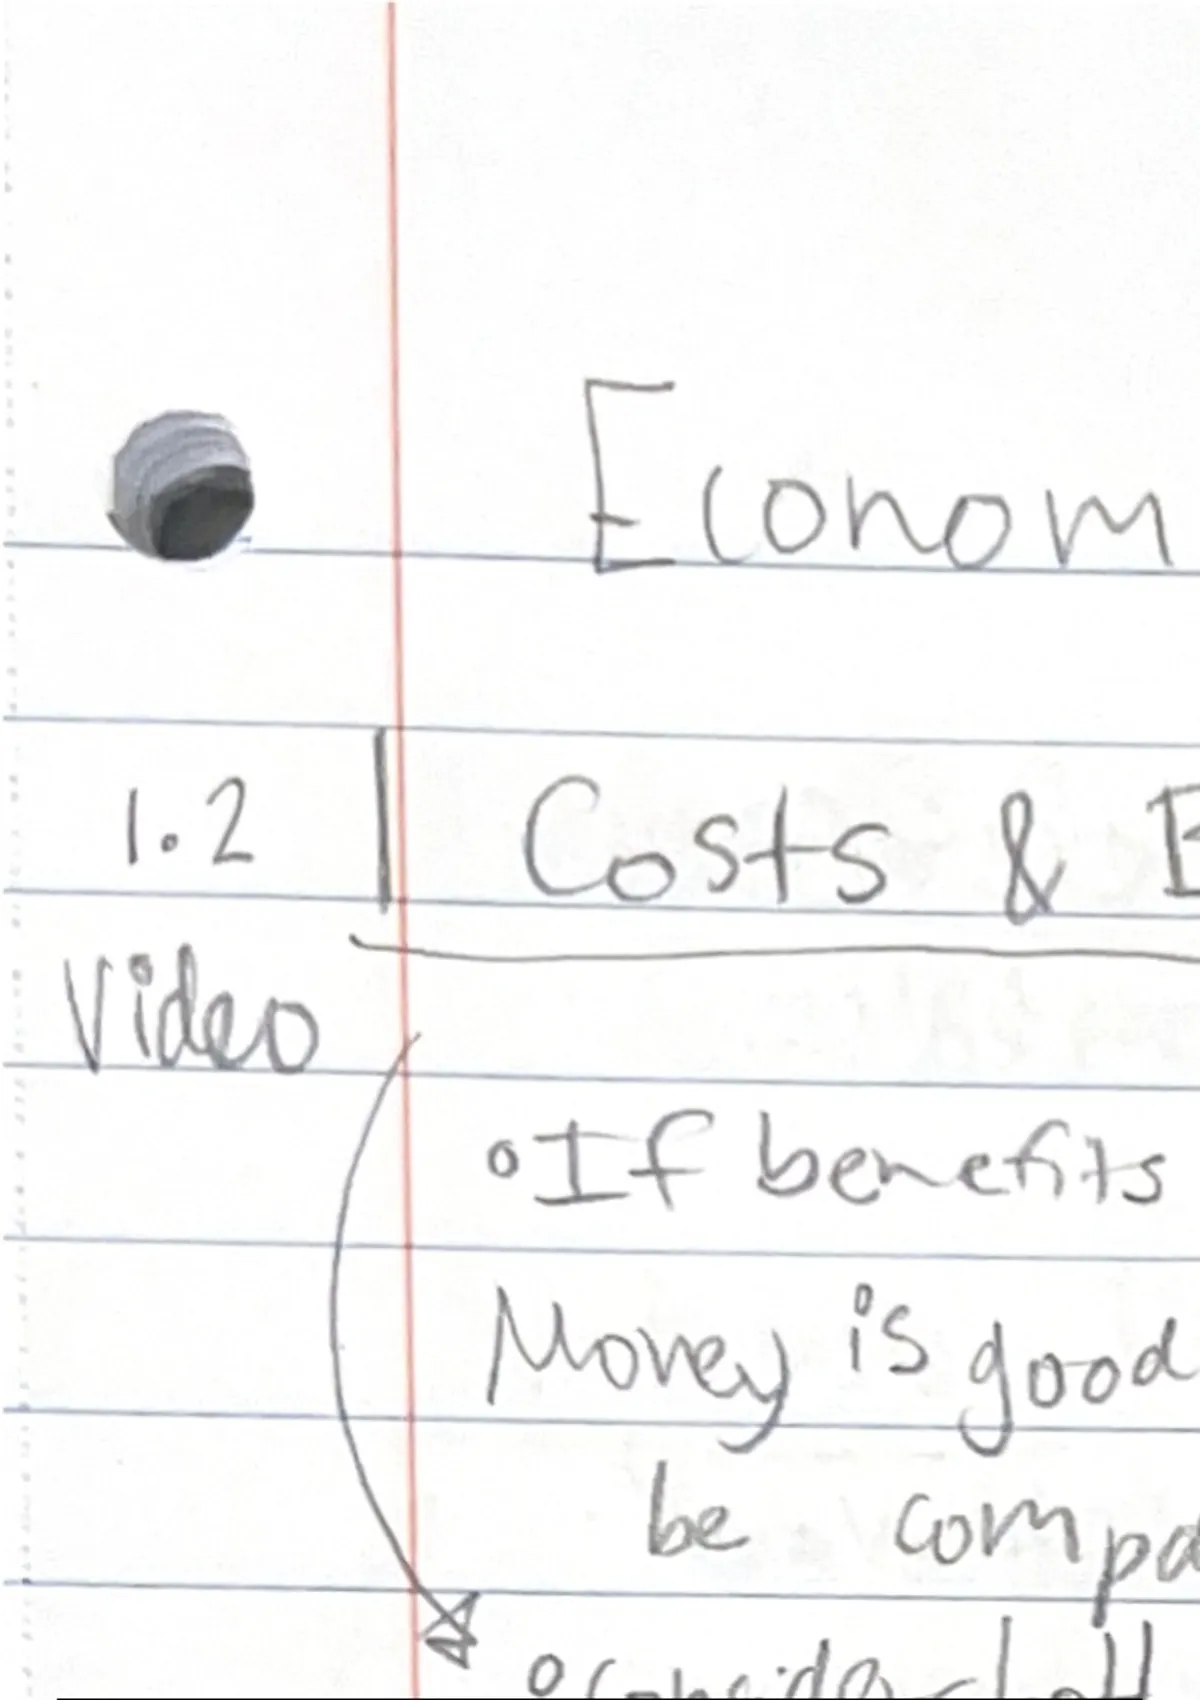 Econom
1.2 | Costs & B
Video
° If benefits
Money is good
be compa